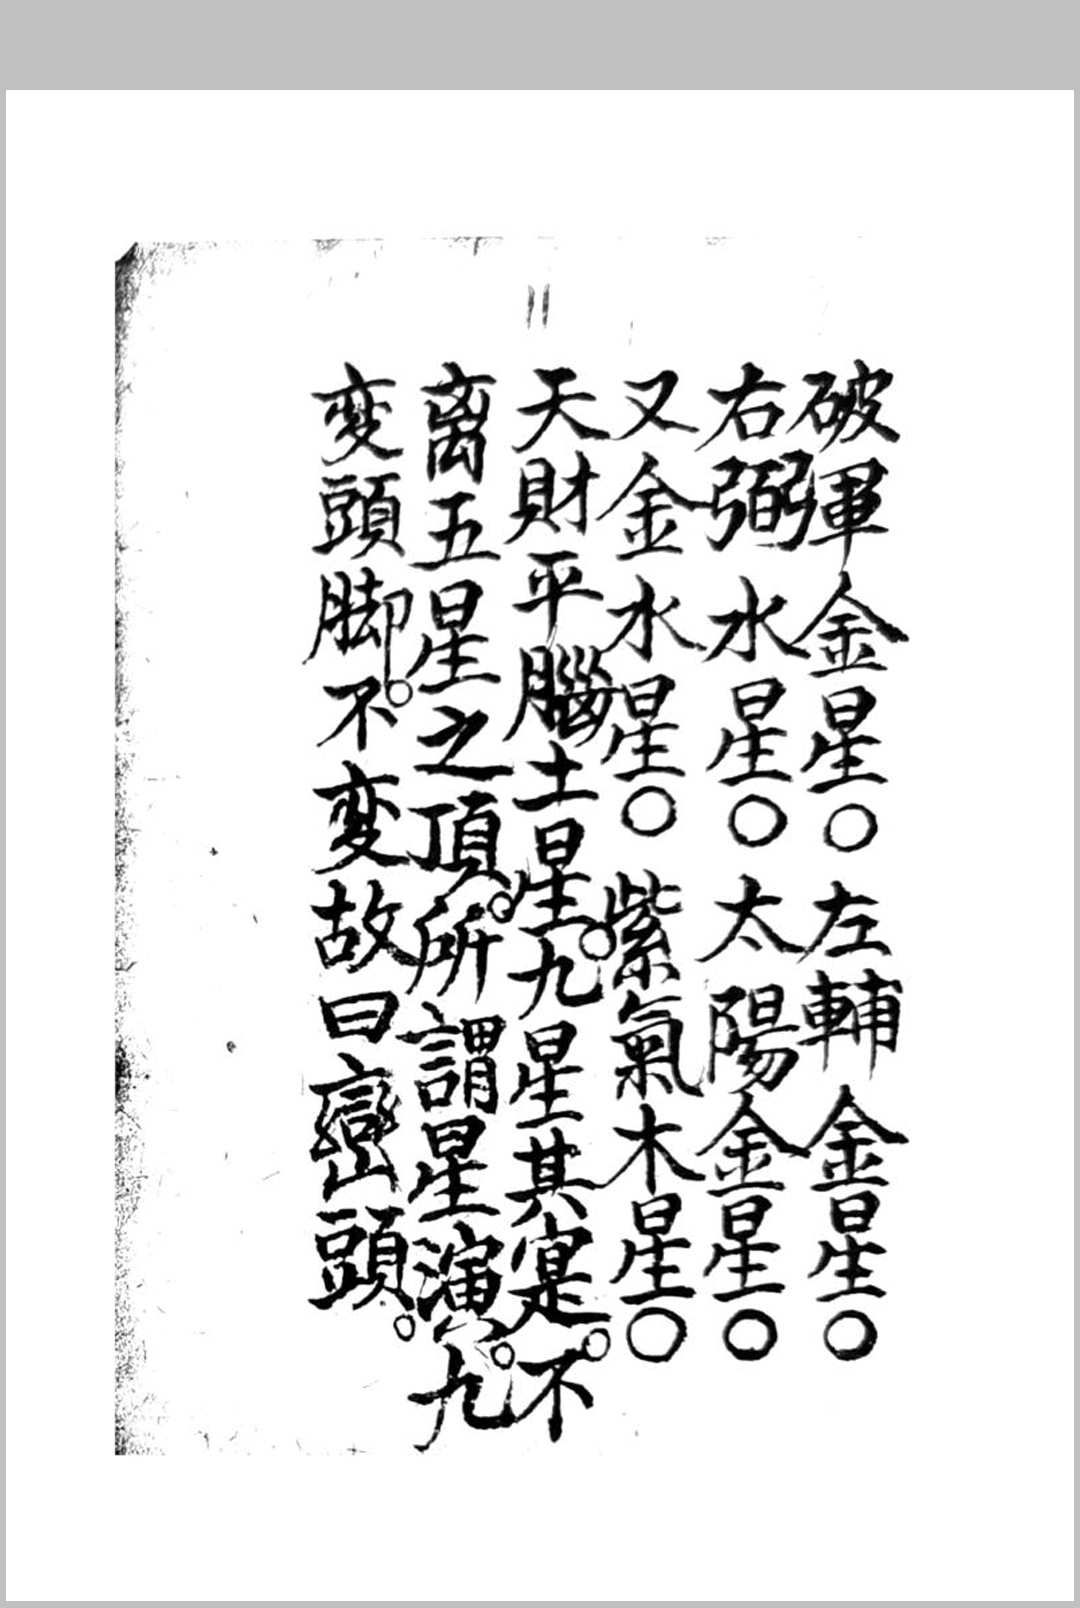 破軍金星〇左輔金星〇
右弼水星〇太陽金星〇
又金水星〇紫氣木星〇
天財平腦土星。九星其寔。不
离五星之頂。所謂星演。九
变頭脚。不变故曰巒頭。